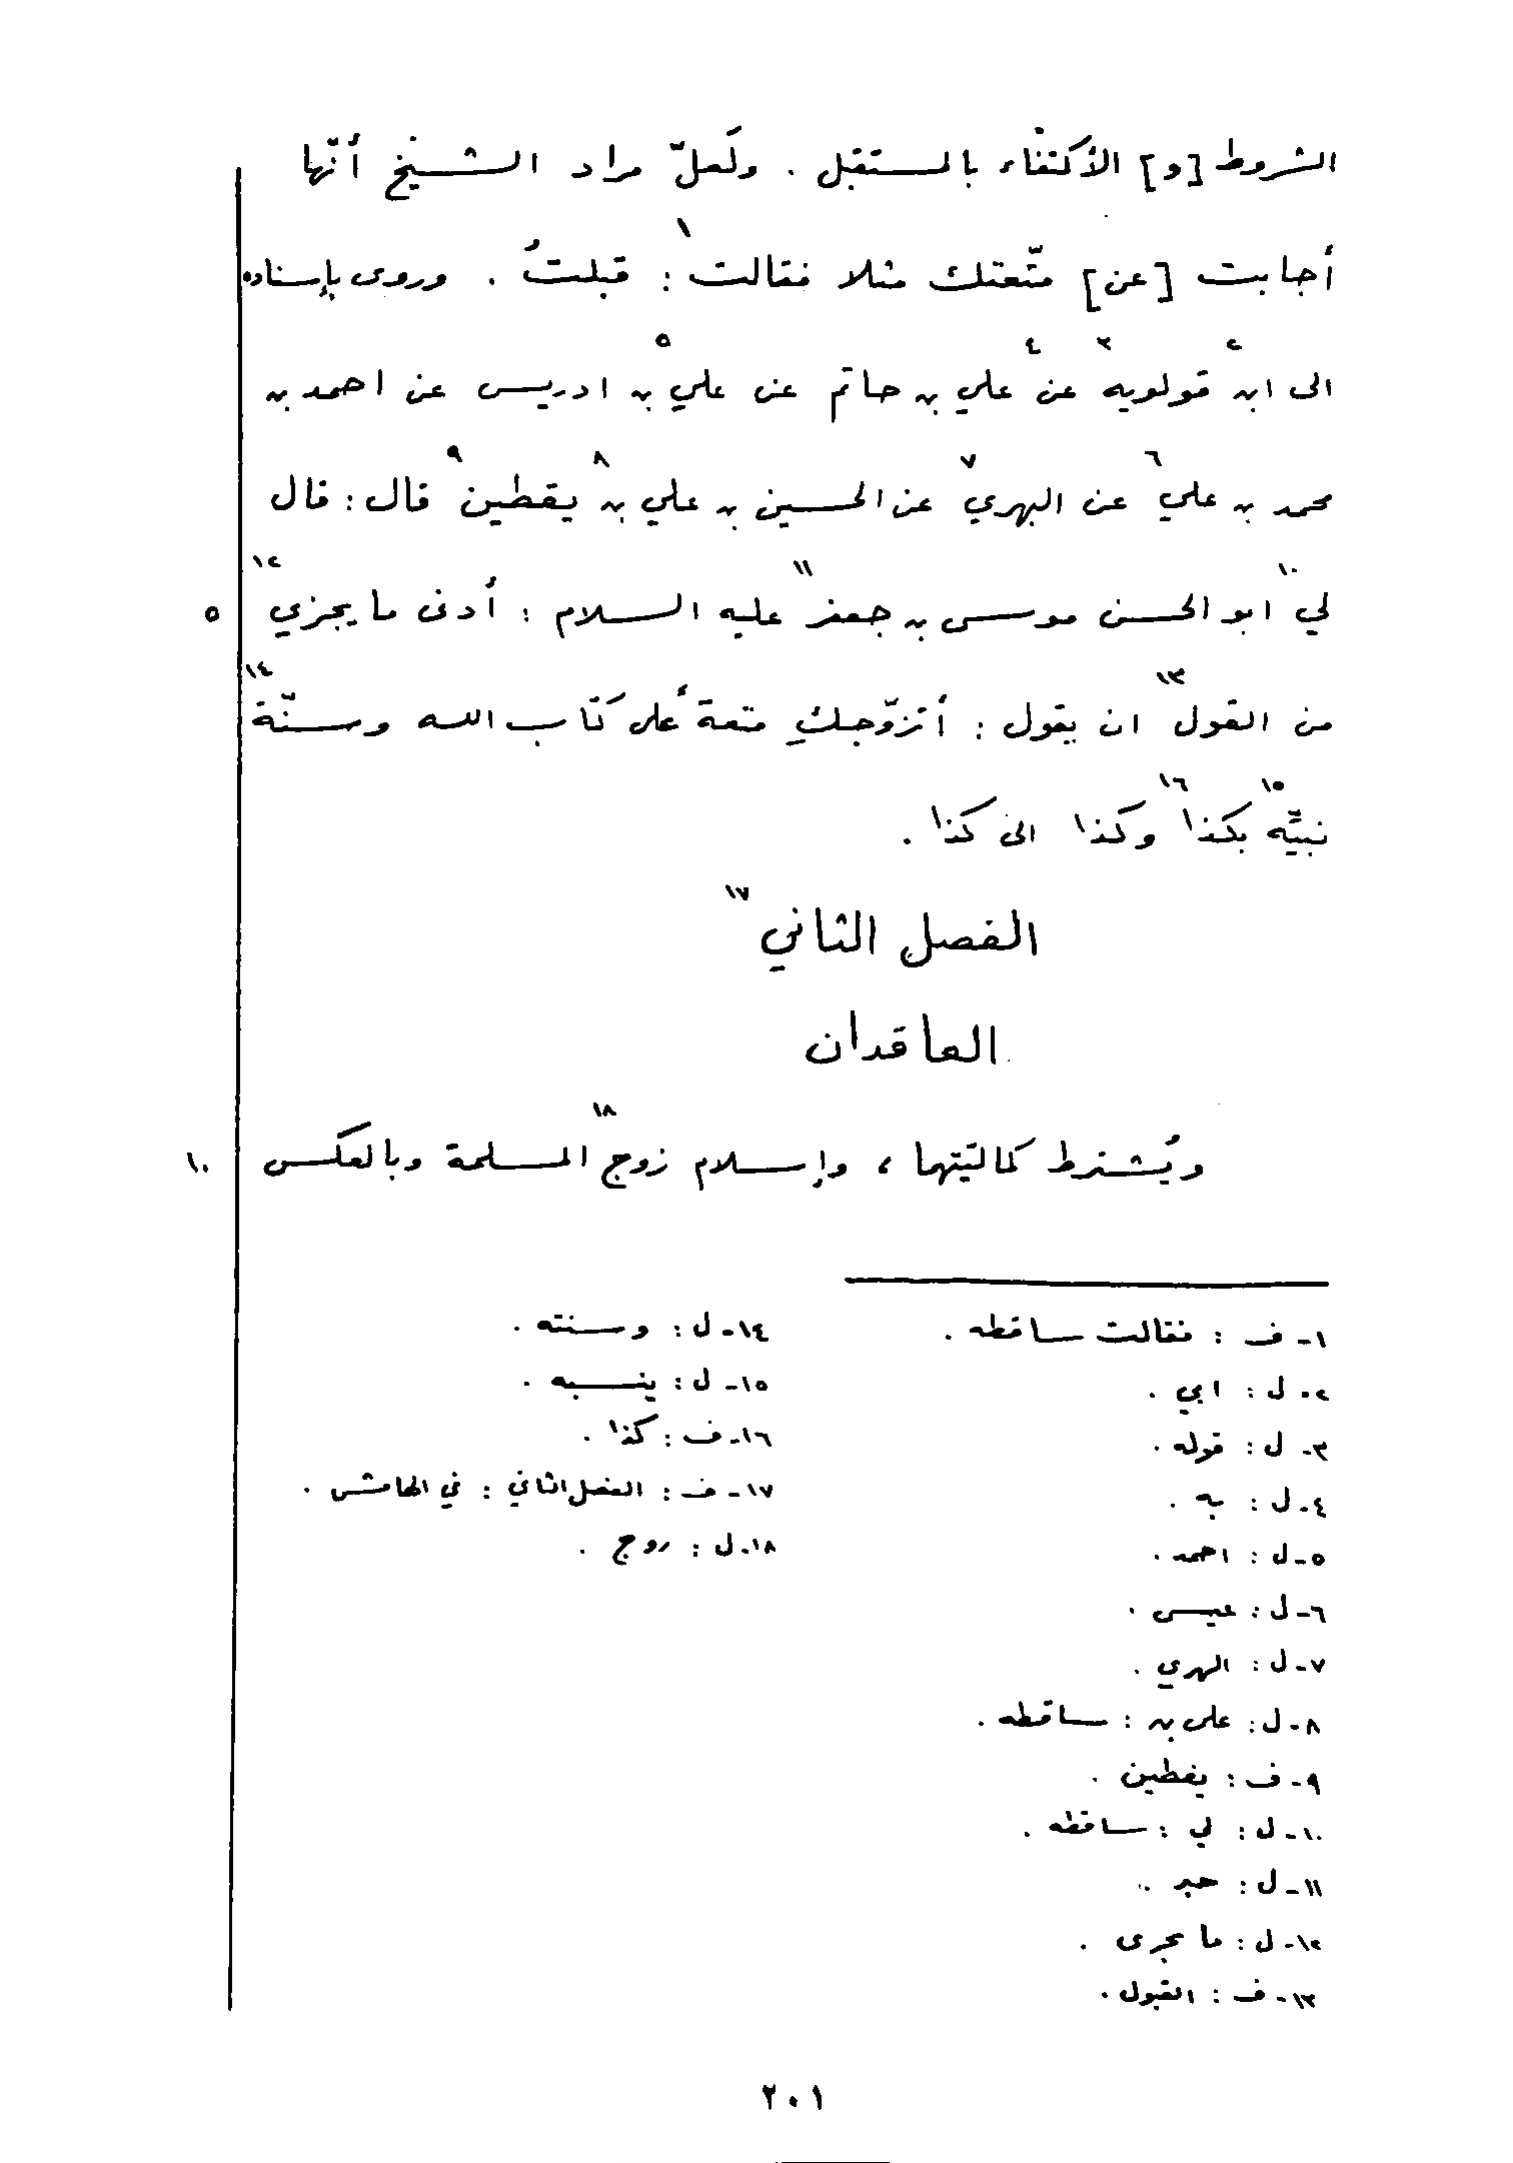 الشروط [و] الأكتفاء بالمستقبل . ولَعلّ مراد الشيخ أنّها
أجابت [عن] متّعتك مثلا فقالت١ : قبلتُ . وروى بإسناده
الى ابن٢ قولويه٣ عن٤ علي بن حاتم عن علي٥ بن ادريس عن احمد بن
محمد بن علي٦ عن البهري٧ عن الحسين بن علي بن٨ يقطين٩ قال : قال
لي١٠ ابو الحسن موسى بن جعفر١١ عليه السلام : أدنى ما يجزي١٢ ٥
من القول١٣ ان يقول : أتزوّجكِ متعة على كتاب الله وسنّة١٤
نبيّه١٥ بكذا١٦ وكذا الى كذا .
الفصل الثاني١٧
العاقدان
ويُشترط كماليّتهما ، وإسلام زوج١٨ المسلمة وبالعكس ١٠
١ - ف : فقالت ساقطه .
٢ - ل : ابي .
٣ - ل : قوله .
٤ - ل : به .
٥ - ل : احمد .
٦ - ل : عيسى .
٧ - ل : الهري .
٨ - ل : على بن : ساقطه .
٩ - ف : يفطين .
١٠ - ل : لي : ساقطه .
١١ - ل : حبر .
١٢ - ل : ما يجرى .
١٣ - ف : القبول .
١٤ - ل : وسنته .
١٥ - ل : ينسبه .
١٦ - ف : كذا .
١٧ - ف : الفصل الثاني : في الهامش .
١٨ - ل : روج .
٢٠١